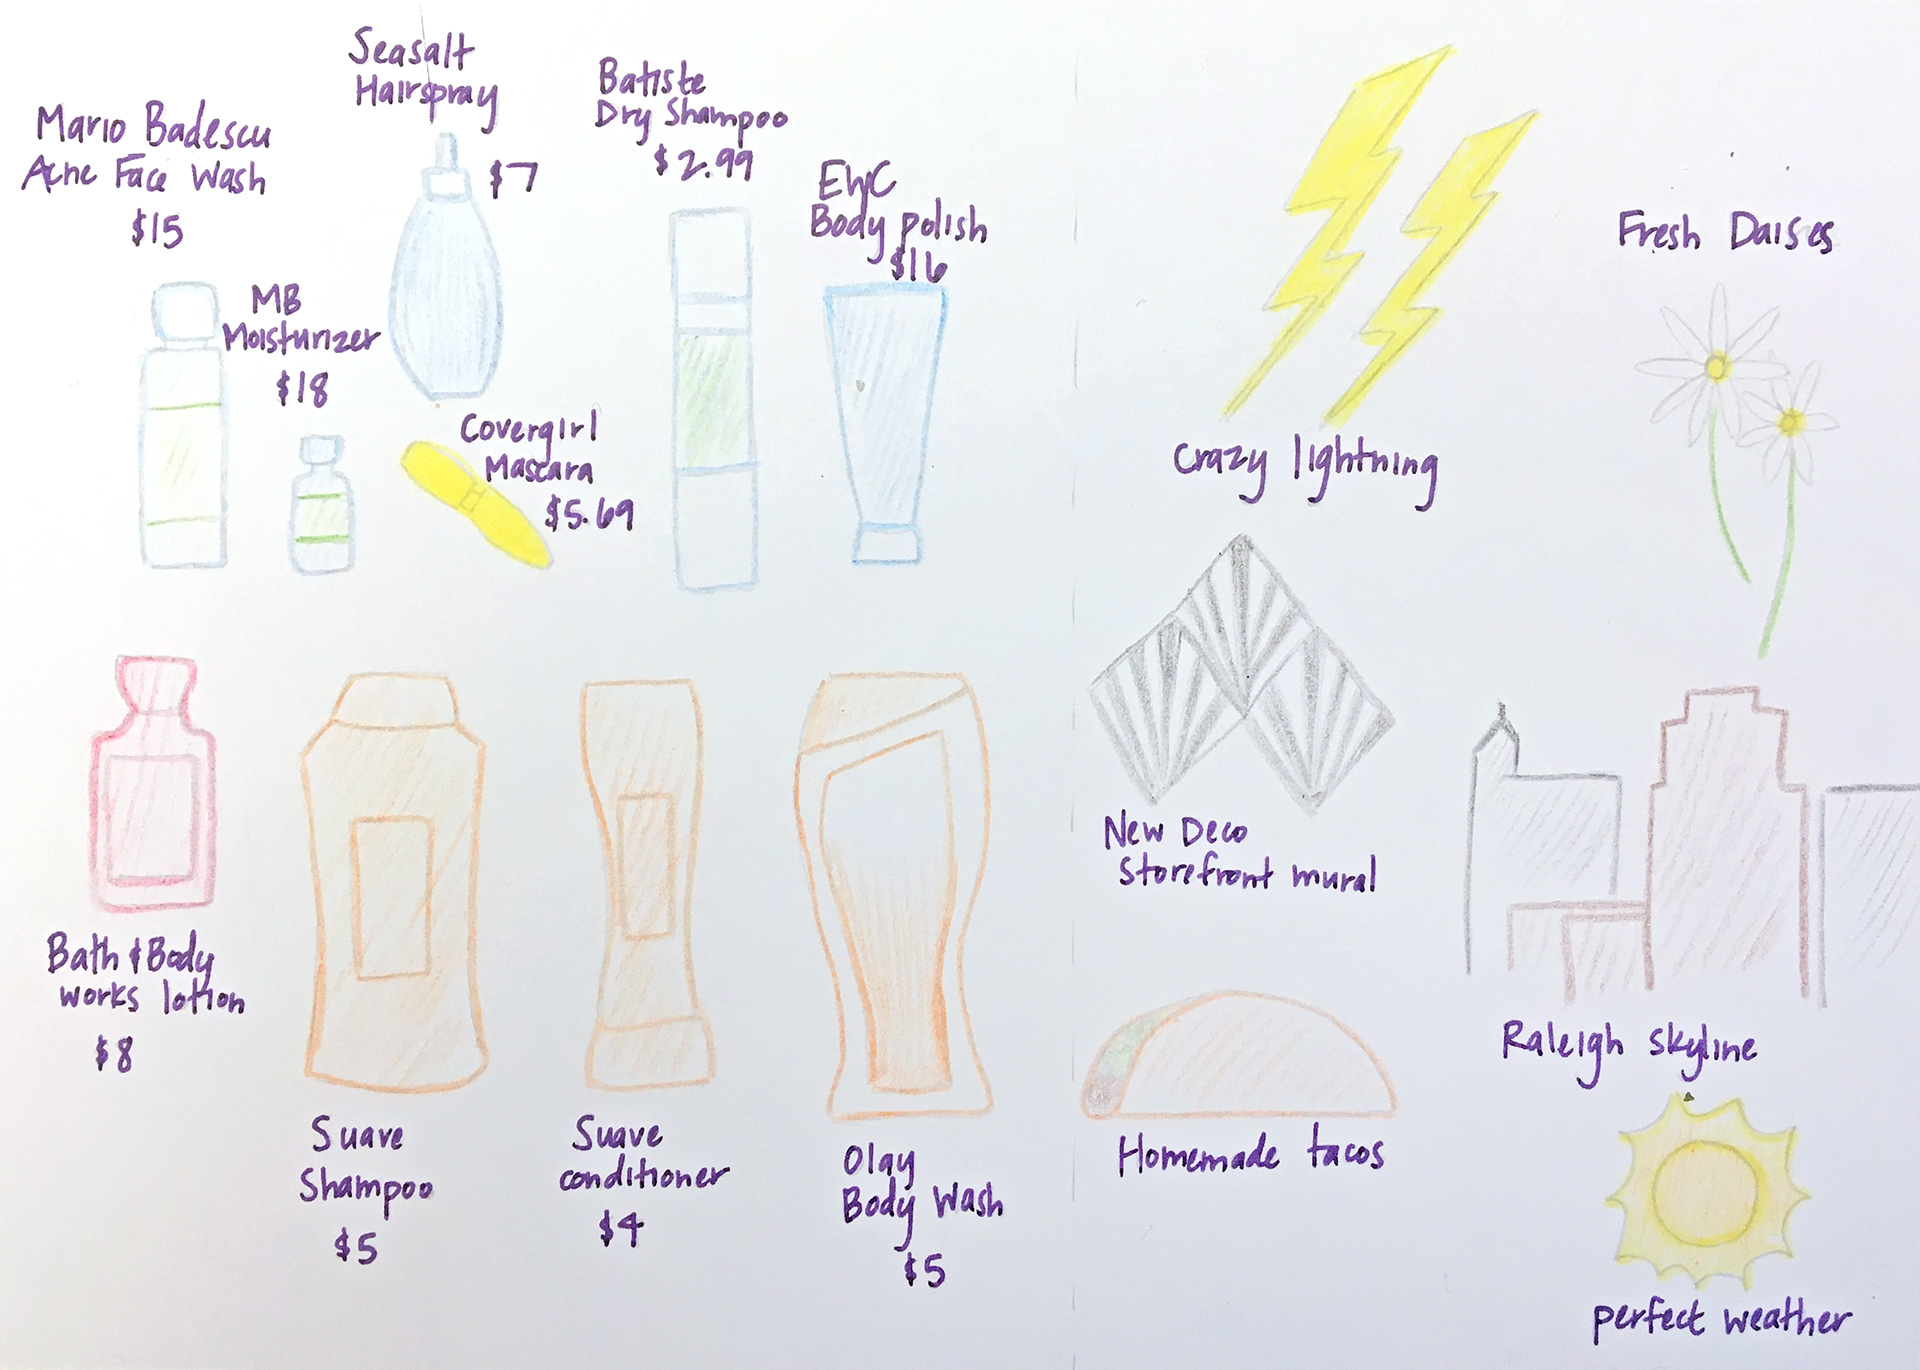 Mario Badescu
Acne Face Wash
$15
MB
Moisturizer
$18
Seasalt
Hairspray
$7
Covergirl
Mascara
$5.69
Batiste
Dry Shampoo
$2.99
EWC
Body polish
$16
Bath & Body
works lotion
$8
Suave
Shampoo
$5
Suave
conditioner
$4
Olay
Body Wash
$5
Crazy lightning
Fresh Daises
New Deco
storefront mural
Raleigh skyline
Homemade tacos
perfect weather